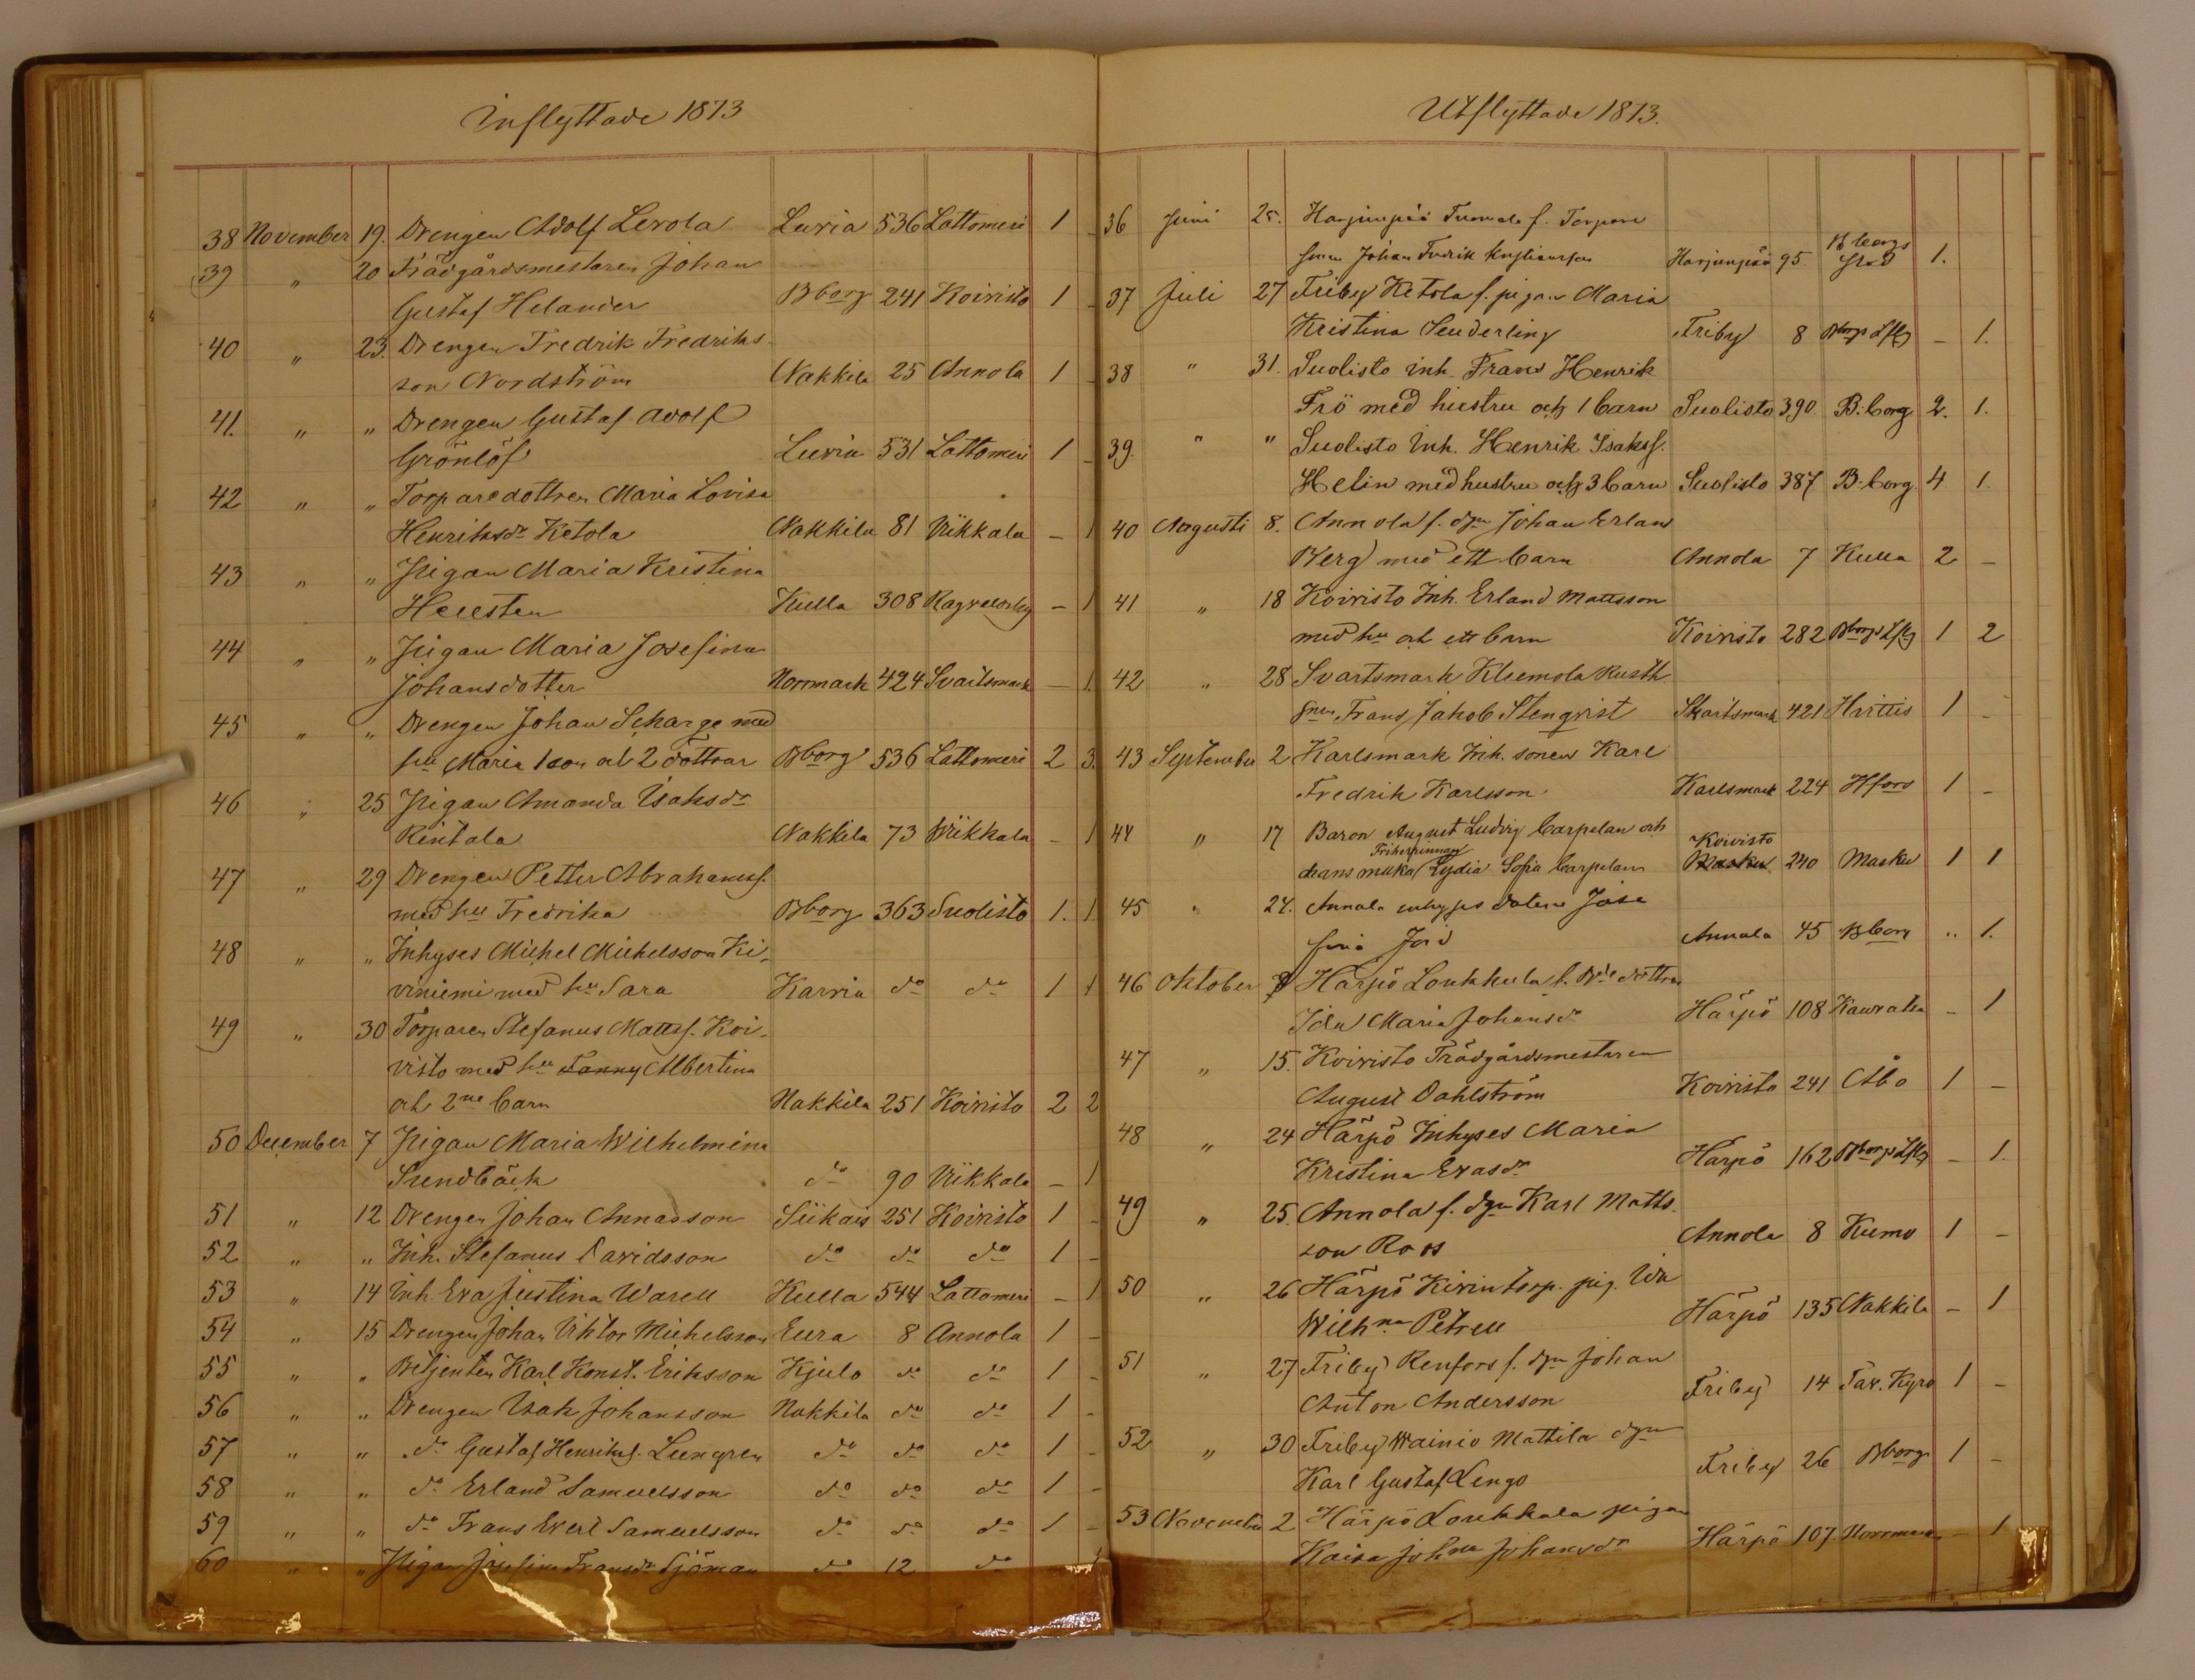 Inflyttade 1873
38 November 19. Drengen Adolf Levola Luvia 536 Lattomeri 1 -
39 " 20 Trädgårdsmestaren Johan
Gustaf Helander Bborg 241 Koivisto 1 -
40 " 23. Drengen Fredrik Fredriks-
son Nordström Nakkila 25 Annola 1 -
41. " " Drengen Gustaf Adolf
Grönlöf Luvia 531 Lattomeri 1 -
42 " " Torparedottren Maria Lovisa
Henriksdr Ketola Nakkila 81 Wikkala - 1
43 " " Pigan Maria Kristina
Hellsten Kulla 308 Ragvaldsby - 1
44 " " Pigan Maria Josefina
Johansdotter Norrmark 424 Svartsmark - 1.
45 " " Drengen Johan Scharge med
hu Maria 1 son och 2 döttrar Bborg 536 Lattomeri 2 3.
46 " 25 Pigan Amanda Isaksdr
Rintala Nakkila 73 Wikkala - 1
47 " 29 Drengen Petter Abrahamss.
med hu Fredrika Bborg 363 Suolisto 1. 1
48 " " Inhyses Michel Michelsson Ki-
viniemi med hu Sara Karvia do do 1 1
49 " 30 Torparen Stefanus Mattss. Koi-
visto med hu Fanny Albertina
och 2ne barn Nakkila 251 Koivisto 2 2
50 December 7 Pigan Maria Wilhelmina
Sundbäck do 90 Wikkala - 1
51 " 12 Drengen Johan Annasson Siikais 251 Koivisto 1 -
52 " " Inh. Stefanus Davidsson do do do 1 -
53 " 14 Inh. Eva Justina Warell Kulla 544 Lattomeri - 1
54 " 15 Drengen Johan Viktor Michelsson Eura 8 Annola 1 -
55 " " Betjenten Karl Konst. Eriksson Kjulo do do 1 -
56 " " Drengen Isak Johansson Nakkila do do 1 -
57 " " do Gustaf Henrikss. Lungren do do do 1 -
58 " " do Erland Samuelsson do do do 1 -
59 " " do Frans Evert Samuelsson do do do 1 -
60 " " Pigan Josefina Fransdr Sjöman do 12 do
Utflyttade 1873.
36 Juni 25. Harjunpää Tuomola f. Torpare
sonen Johan Fredrik Kristiansson Harjunpää 95. Bborgs stad 1.
37 Juli 27 Friby Ketola f. pigan Maria
Kristina Senderling Friby 8 Bborgs Lfg - 1.
38 " 31. Suolisto inh. Frans Henrik
Frö med hustru och 1 barn Suolisto 390 B:borg 2. 1.
39. " " Suolisto Inh. Henrik Isakss.
Helin med hustru och 3 barn Suolisto 387 B:borg 4 1.
40 Augusti 8. Annola f. dgn Johan Erland
Berg med ett barn Annola 7 Kulla 2 -
41 " 18 Koivisto Inh. Erland Mattsson
med hu och ett barn Koivisto 282 Bborgs Lfg 1 2
42 " 28 Svartsmark Klemola Rusth.
snen Frans Jakob Stenqvist Svartsmark 421 Hvittis 1 -
43 September 2 Karlsmark Inh. sonen Karl
Fredrik Karlsson Karlsmark 224 Hfors 1 -
44 " 17 Baron August Ludvig Carpelan och
dess maka Friherrinnan Lydia Sofia Carpelan Koivisto Masku 240 Masku 1 1
45 " 24. Annola inhyses dotern Jose
fina Annala 45 Bborg " 1.
46 Oktober Härpö Loukkula f. dottren
Ida Maria Johansdr Härpö 108 Kauvatsa - 1
47 " 15. Koivisto Trädgårdsmestaren
August Dahlström Koivisto 241 Åbo 1 -
48 " 24 Härpö Inhyses Maria
Kristina Evasdr Härpö 162 Bborgs Lfg - 1.
49 " 25. Annola f. dgn Karl Matts-
son Roos Annola 8 Kumo 1 -
50 " 26 Härpö Kivin torp. pig. Ida
Wilhna Petrell Härpö 135 Nakkila - 1
51 " 27 Friby Renfors f. dgn Johan
Anton Andersson Friby 14 Tav. Kyro 1 -
52 " 30 Friby Wainio Mattila dgn
Karl Gustaf Lengo Friby 26 Bborg 1 -
53 November 2 Härpö Loukkala pigan
Kaisa Johna Johansdr Härpö 107 Norrmark - 1